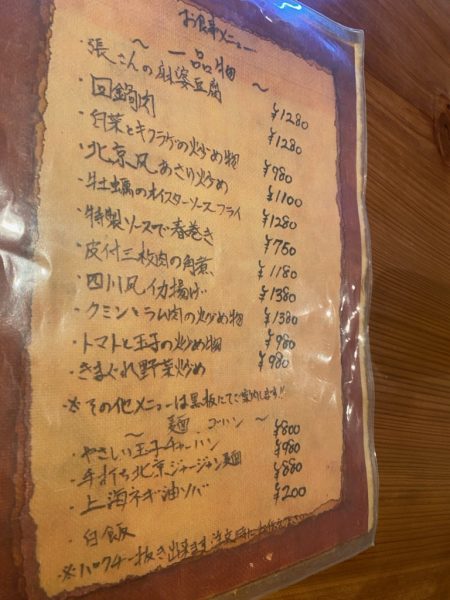 お食事メニュー
～ 一品物 ～
・張さんの麻婆豆腐 ¥1280
・回鍋肉 ¥1280
・白菜とキクラゲの炒め物 ¥980
・北京風あさり炒め ¥1100
・牡蠣のオイスターソースフライ ¥1280
・特製ソースで春巻き ¥750
・皮付三枚肉の角煮 ¥1180
・四川風イカ揚げ ¥1380
・クミンとラム肉の炒め物 ¥1380
・トマトと玉子の炒め物 ¥980
・きまぐれ野菜炒め ¥980
※その他メニューは黒板にてご案内します!!
～ 麺、ゴハン ～
・やさしい玉子チャーハン ¥800
・手打ち北京ジャージャン麺 ¥980
・上海ネギ油ソバ ¥880
・白飯 ¥200
※パクチー抜き出来ます。注文時に